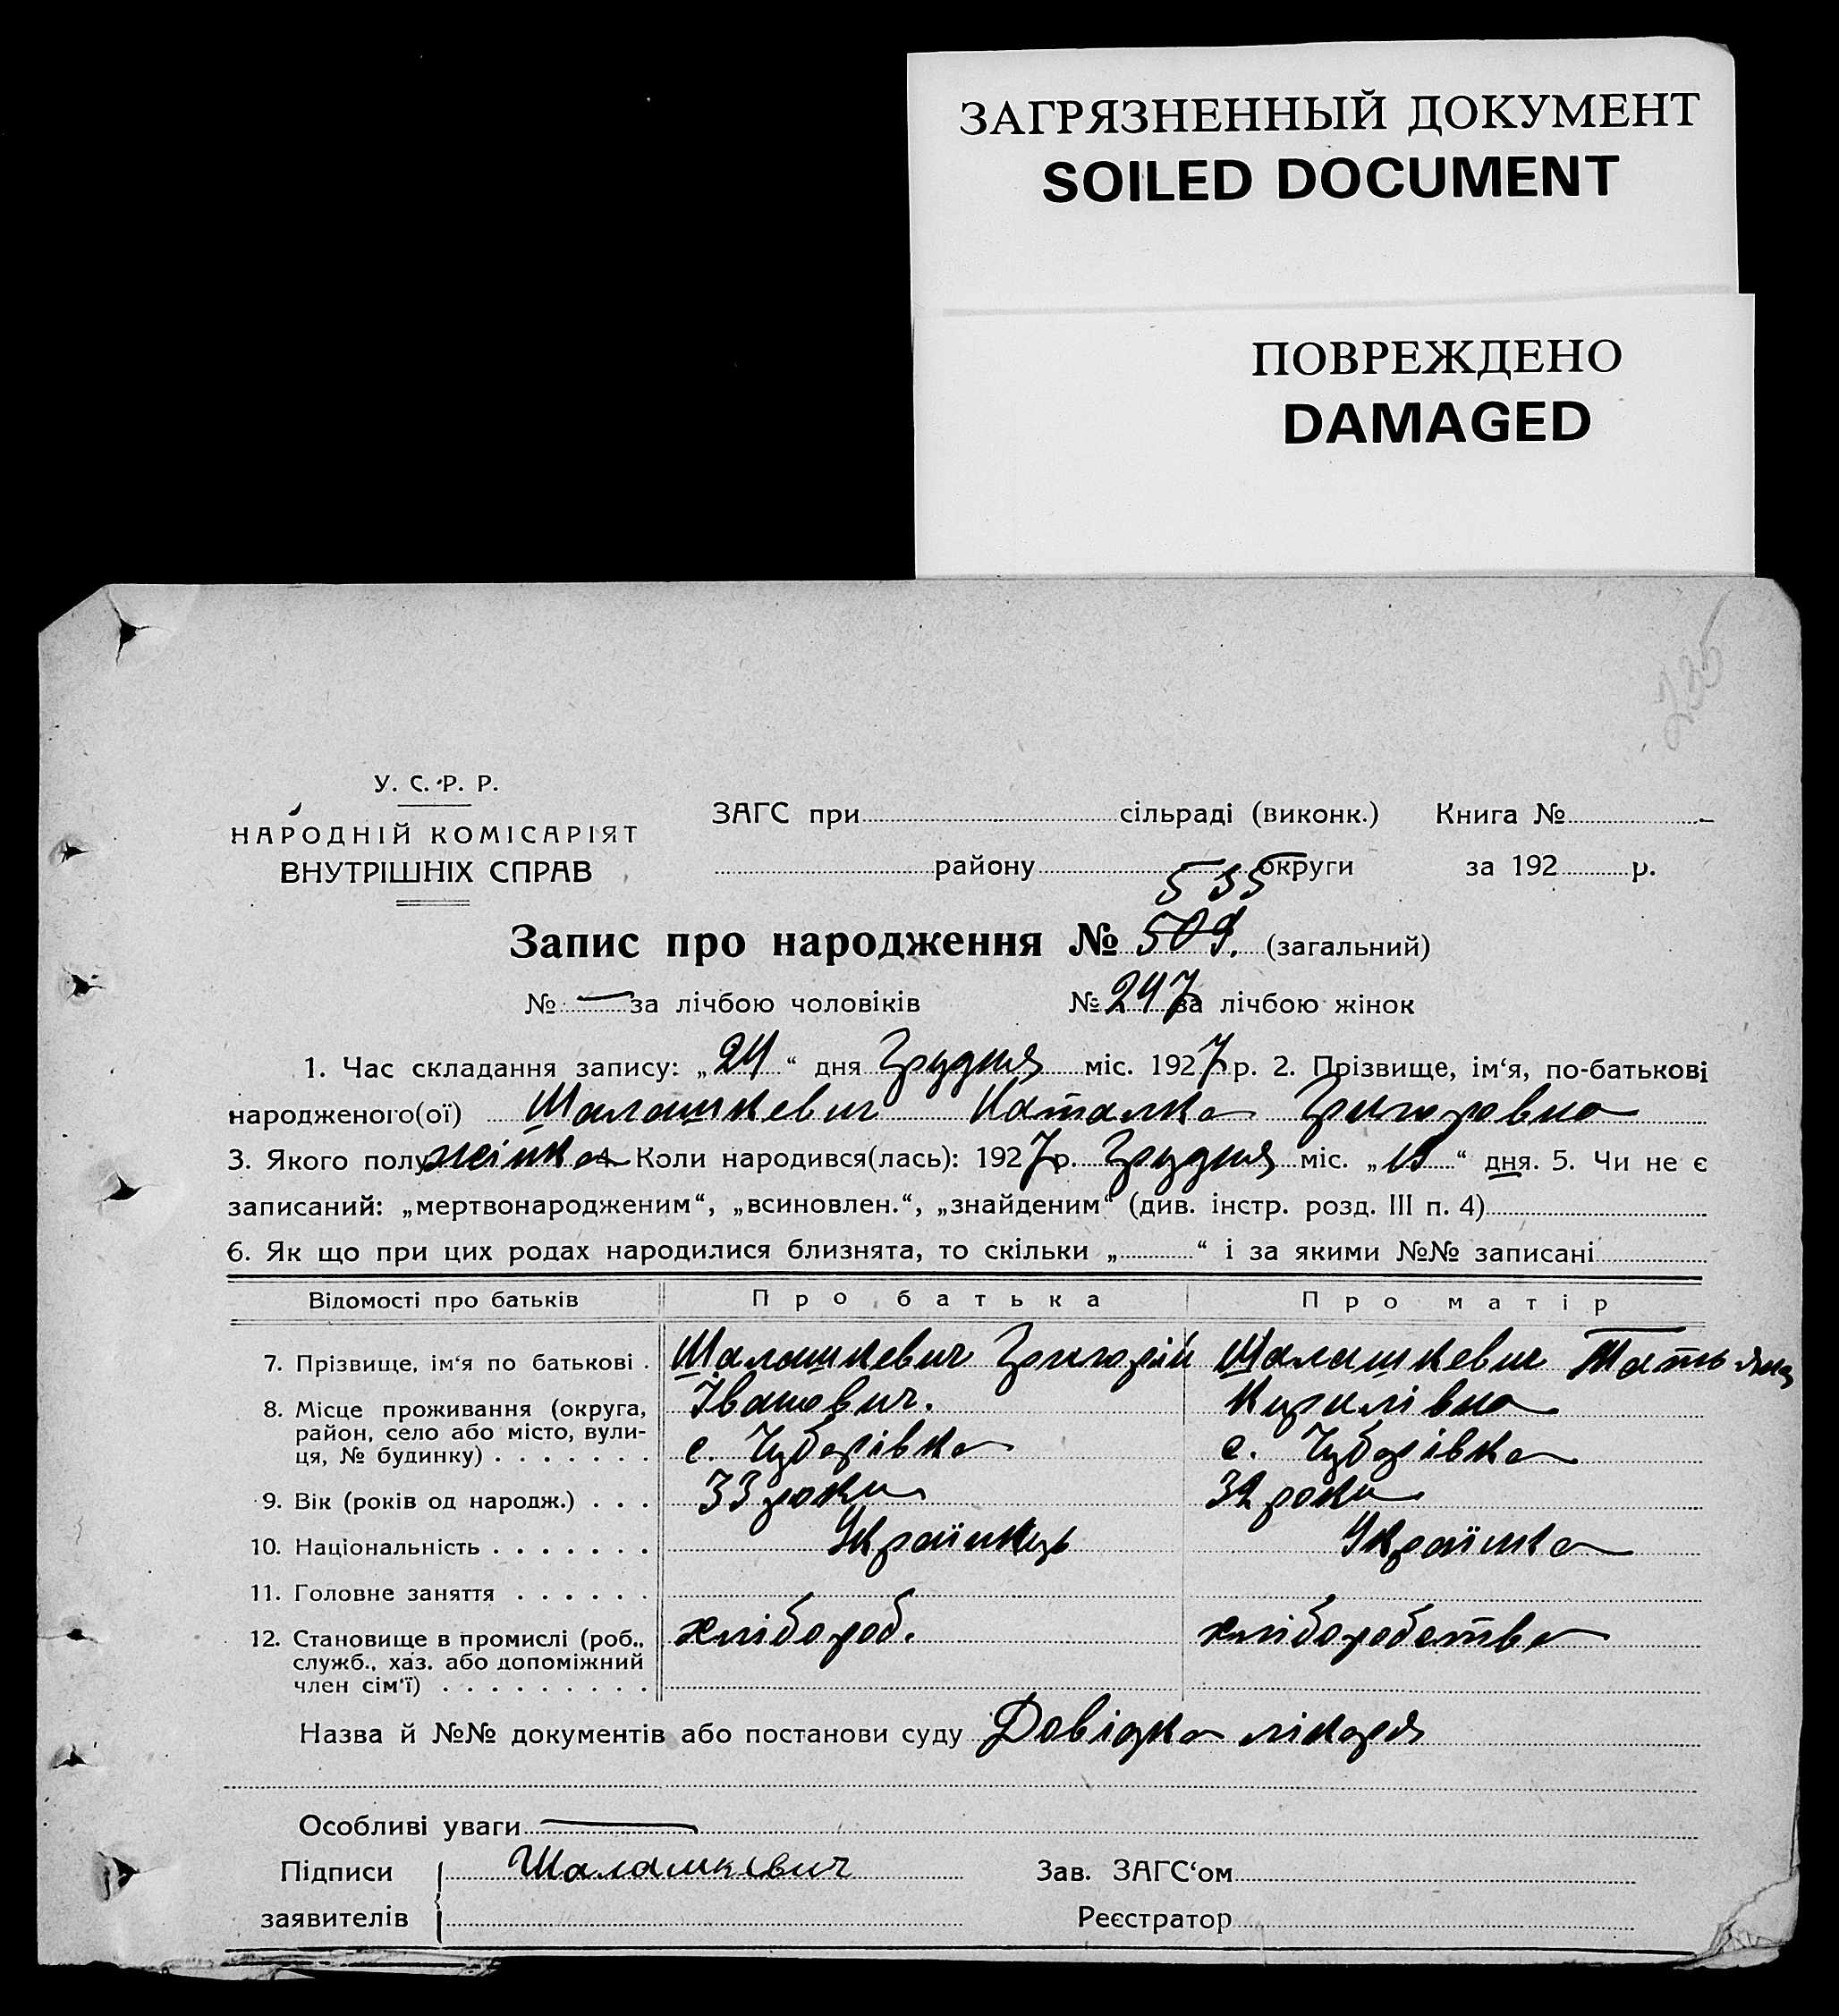 ЗАГРЯЗНЕННЫЙ ДОКУМЕНТ
SOILED DOCUMENT
ПОВРЕЖДЕНО
DAMAGED
235
У. С. Р. Р.
НАРОДНІЙ КОМІСАРІЯТ
ВНУТРІШНІХ СПРАВ
ЗАГС при сільраді (виконк.) Книга №
району округи за 192 р.
535
Запис про народження № 509. (загальний)
№ — за лічбою чоловіків № 247 за лічбою жінок
1. Час складання запису: „24“ дня Грудня міс. 1927 р. 2. Прізвище, ім‘я, по-батькові
народженого(ої) Шалашкевич Наталка Григоровна
3. Якого полу жінка 4. Коли народився(лась): 1927 р. Грудня міс. „15“ дня. 5. Чи не є
записаний: „мертвонародженим“, „всиновлен.“, „знайденим“ (див. інстр. розд. III п. 4)
6. Як що при цих родах народилися близнята, то скільки „ “ і за якими №№ записані
Відомості про батьків Про батька Про матір
7. Прізвище, ім‘я по батькові . Шалашкевич Григорій Шалашкевич Татьяна
8. Місце проживання (округа, Іванович. Кирилівна
район, село або місто, вули-
ця, № будинку) . . . . . . . с. Чубарівка с. Чубарівка
9. Вік (років од народж.) . . . 33 роки 32 роки
10. Національність . . . . . . . Українець Українка
11. Головне заняття . . . . . .
12. Становище в промислі (роб., хлібороб. хліборобства
служб., хаз. або допоміжний
член сім‘ї) . . . . . . . . .
Назва й №№ документів або постанови суду Довідка лікаря
Особливі уваги —
Підписи Шалашкевич Зав. ЗАГС‘ом
заявителів Реєстратор